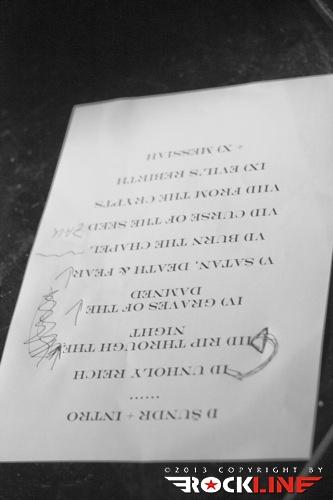 I) SUNDR + INTRO
......
II) UNHOLY REICH
III) RIP THROUGH THE
NIGHT
IV) GRAVES OF THE
DAMNED
V) SATAN, DEATH & FEAR
VI) BURN THE CHAPEL
VII) CURSE OF THE SEED
VIII) FROM THE CRYPTS
IX) EVIL'S REBIRTH
+ X) MESSIAH
©2013 COPYRIGHT BY
ROCKLINE